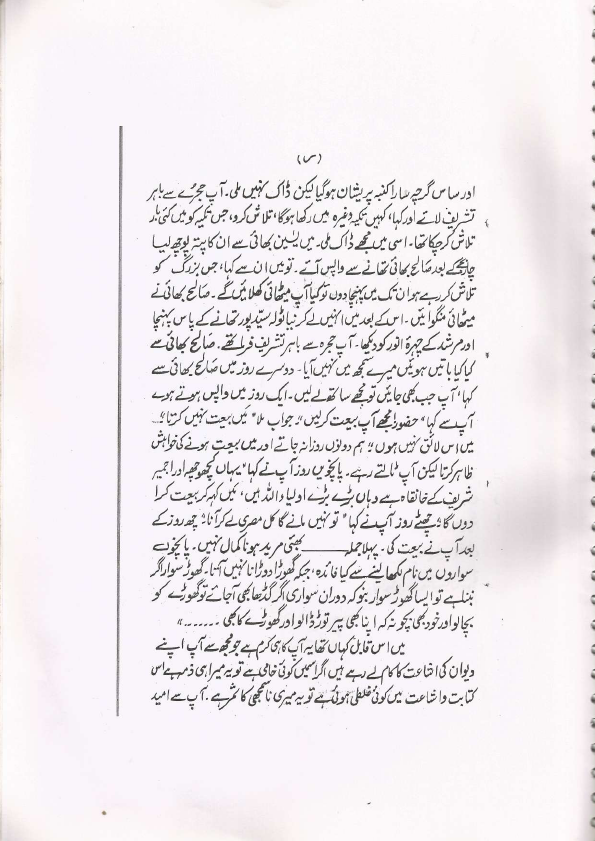 (س)
اور ساس گرچہ سارا کنبہ پریشان ہوگیا لیکن ڈاک نہیں ملی۔ آپ حجرے سے باہر
تشریف لائے اور کہا، کہیں تکیہ وغیرہ میں رکھا ہوگا، تلاش کرو، جس تکیہ کو میں کئی بار
تلاش کرچکا تھا۔ اسی میں مجھے ڈاک ملی۔ میں یسٰین بھائی سے ان کا پتہ پوچھ لیا
چار بجے کے بعد صالح بھائی تھانے سے واپس آئے۔ تو میں ان سے کہا، جس بزرگ کو
تلاش کر رہے ہو ان تک میں پہنچا دوں تو کیا آپ میٹھائی کھلائیں گے۔ صالح بھائی نے
میٹھائی منگوائیں۔ اس کے بعد میں انہیں لے کر نیا ٹولہ سیّد پور تھانے کے پاس پہنچا
اور مرشد کے چہرۂ انور کو دیکھا۔ آپ حجرہ سے باہر تشریف فرما تھے۔ صالح بھائی سے
کیا کیا باتیں ہوئیں میرے سمجھ میں نہیں آیا۔ دوسرے روز میں صالح بھائی سے
کہا، آپ جب بھی جائیں تو مجھے ساتھ لے لیں۔ ایک روز میں واپس ہوتے ہوے
آپ سے کہا "حضور! مجھے آپ بیعت کرلیں"۔ جواب ملا "میں بیعت نہیں کرتا"۔۔۔
میں اس لائق نہیں ہوں"۔ ہم دونوں روزانہ جاتے اور میں بیعت ہونے کی خواہش
ظاہر کرتا لیکن آپ ٹالتے رہے۔ پانچویں روز آپ نے کہا "یہاں کچھوچھہ اور اجمیر
شریف کے خانقاہ ہے وہاں بڑے بڑے اولیاء اللہ ہیں، میں کہہ کر بیعت کرا
دوں گا"۔ چھٹے روز آپ نے کہا "تو نہیں مانے گا کل مصری لے کر آنا"۔ چھ روز کے
بعد آپ نے بیعت کی۔ پہلا جملہ ــــــــــ بھئی مرید ہونا کمال نہیں۔ پانچویں
سواروں میں نام لکھا لینے سے کیا فائدہ، جبکہ گھوڑا دوڑانا نہیں آتا۔ گھوڑ سوار اگر
بننا ہے تو ایسا گھوڑ سوار بنو کہ دوران سواری اگر گڈھا بھی آجائے تو گھوڑے کو
بچالو اور خود بھی بچو نہ کہ اپنا بھی پیر توڑ ڈالو اور گھوڑے کا بھی ۔۔۔۔۔۔۔"
میں اس قابل کہاں تھا یہ آپ کا ہی کرم ہے جو مجھ سے آپ اپنے
دیوان کی اشاعت کا کام لے رہے ہیں اگر اسمیں کوئی خامی ہے تو یہ میرا ہی ذمہ ہے اس
کتابت و اشاعت میں کوئی غلطی ہوئی ہے تو یہ میری ناسمجھی کا ثمر ہے۔ آپ سے امید